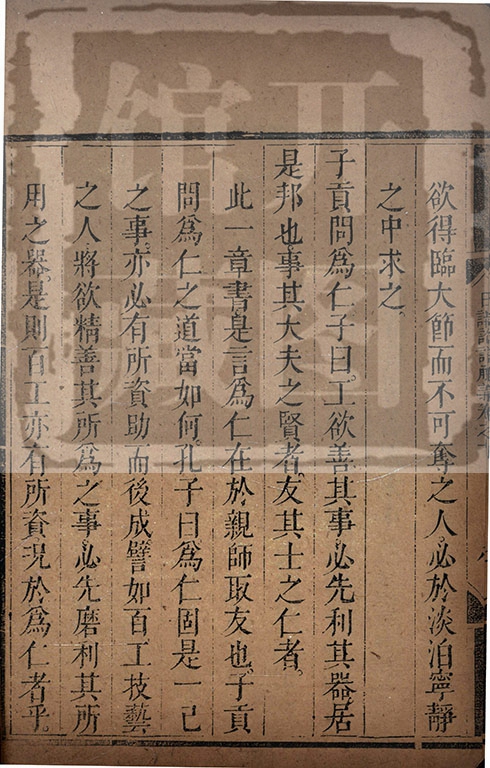 欲得臨大節而不可奪之人必於淡泊寧靜
之中求之
子貢問為仁子曰工欲善其事必先利其器居
是邦也事其大夫之賢者友其士之仁者
此一章書是言為仁在於親師取友也子貢
問為仁之道當如何孔子曰為仁固是一己
之事亦必有所資助而後成譬如百工技藝
之人將欲精善其所為之事必先磨利其所
用之器是則百工亦有所資況於為仁者乎